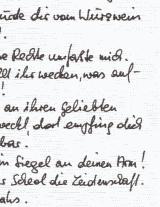 würde dir vom Würzwein
Rechte umfaßte mich.
ihr wecken, was auf-
!
an ihren Geliebten
weckt dort empfing dich
bar.
Siegel an deinen Arm!
Scheol die Leidenschaft.